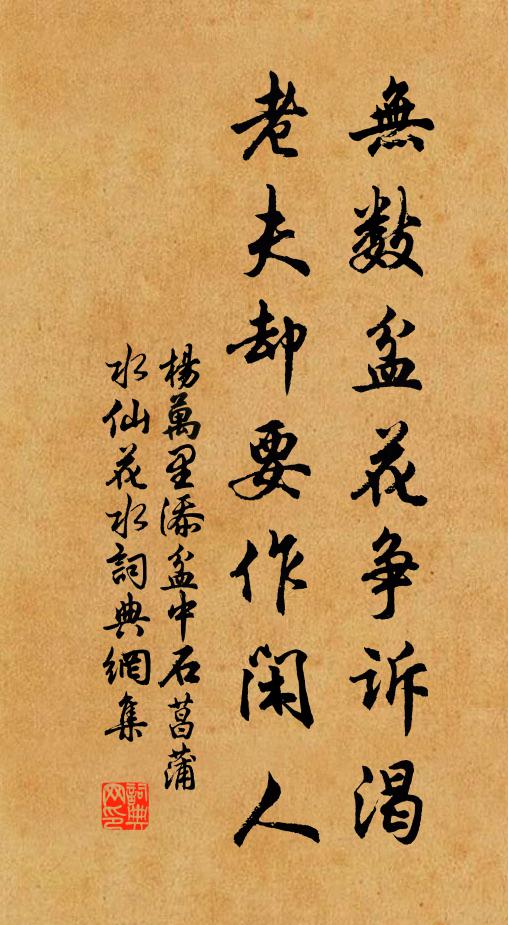 無數盆花争訴渴
老夫却要作閑人
楊萬里添盆中石菖蒲
水仙花水詞典網集
詞典
网印